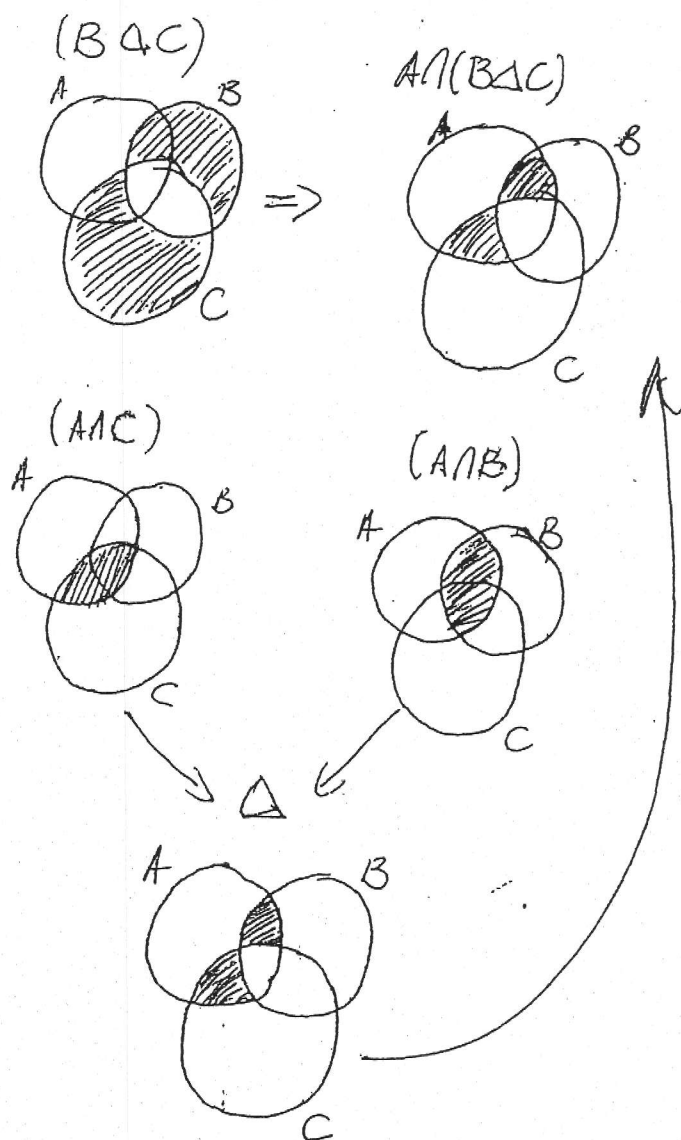 (B Δ C)
A B
C
⇒
A∩(BΔC)
A B
C
(A∩C)
A B
C
(A∩B)
A B
C
Δ
A B
C